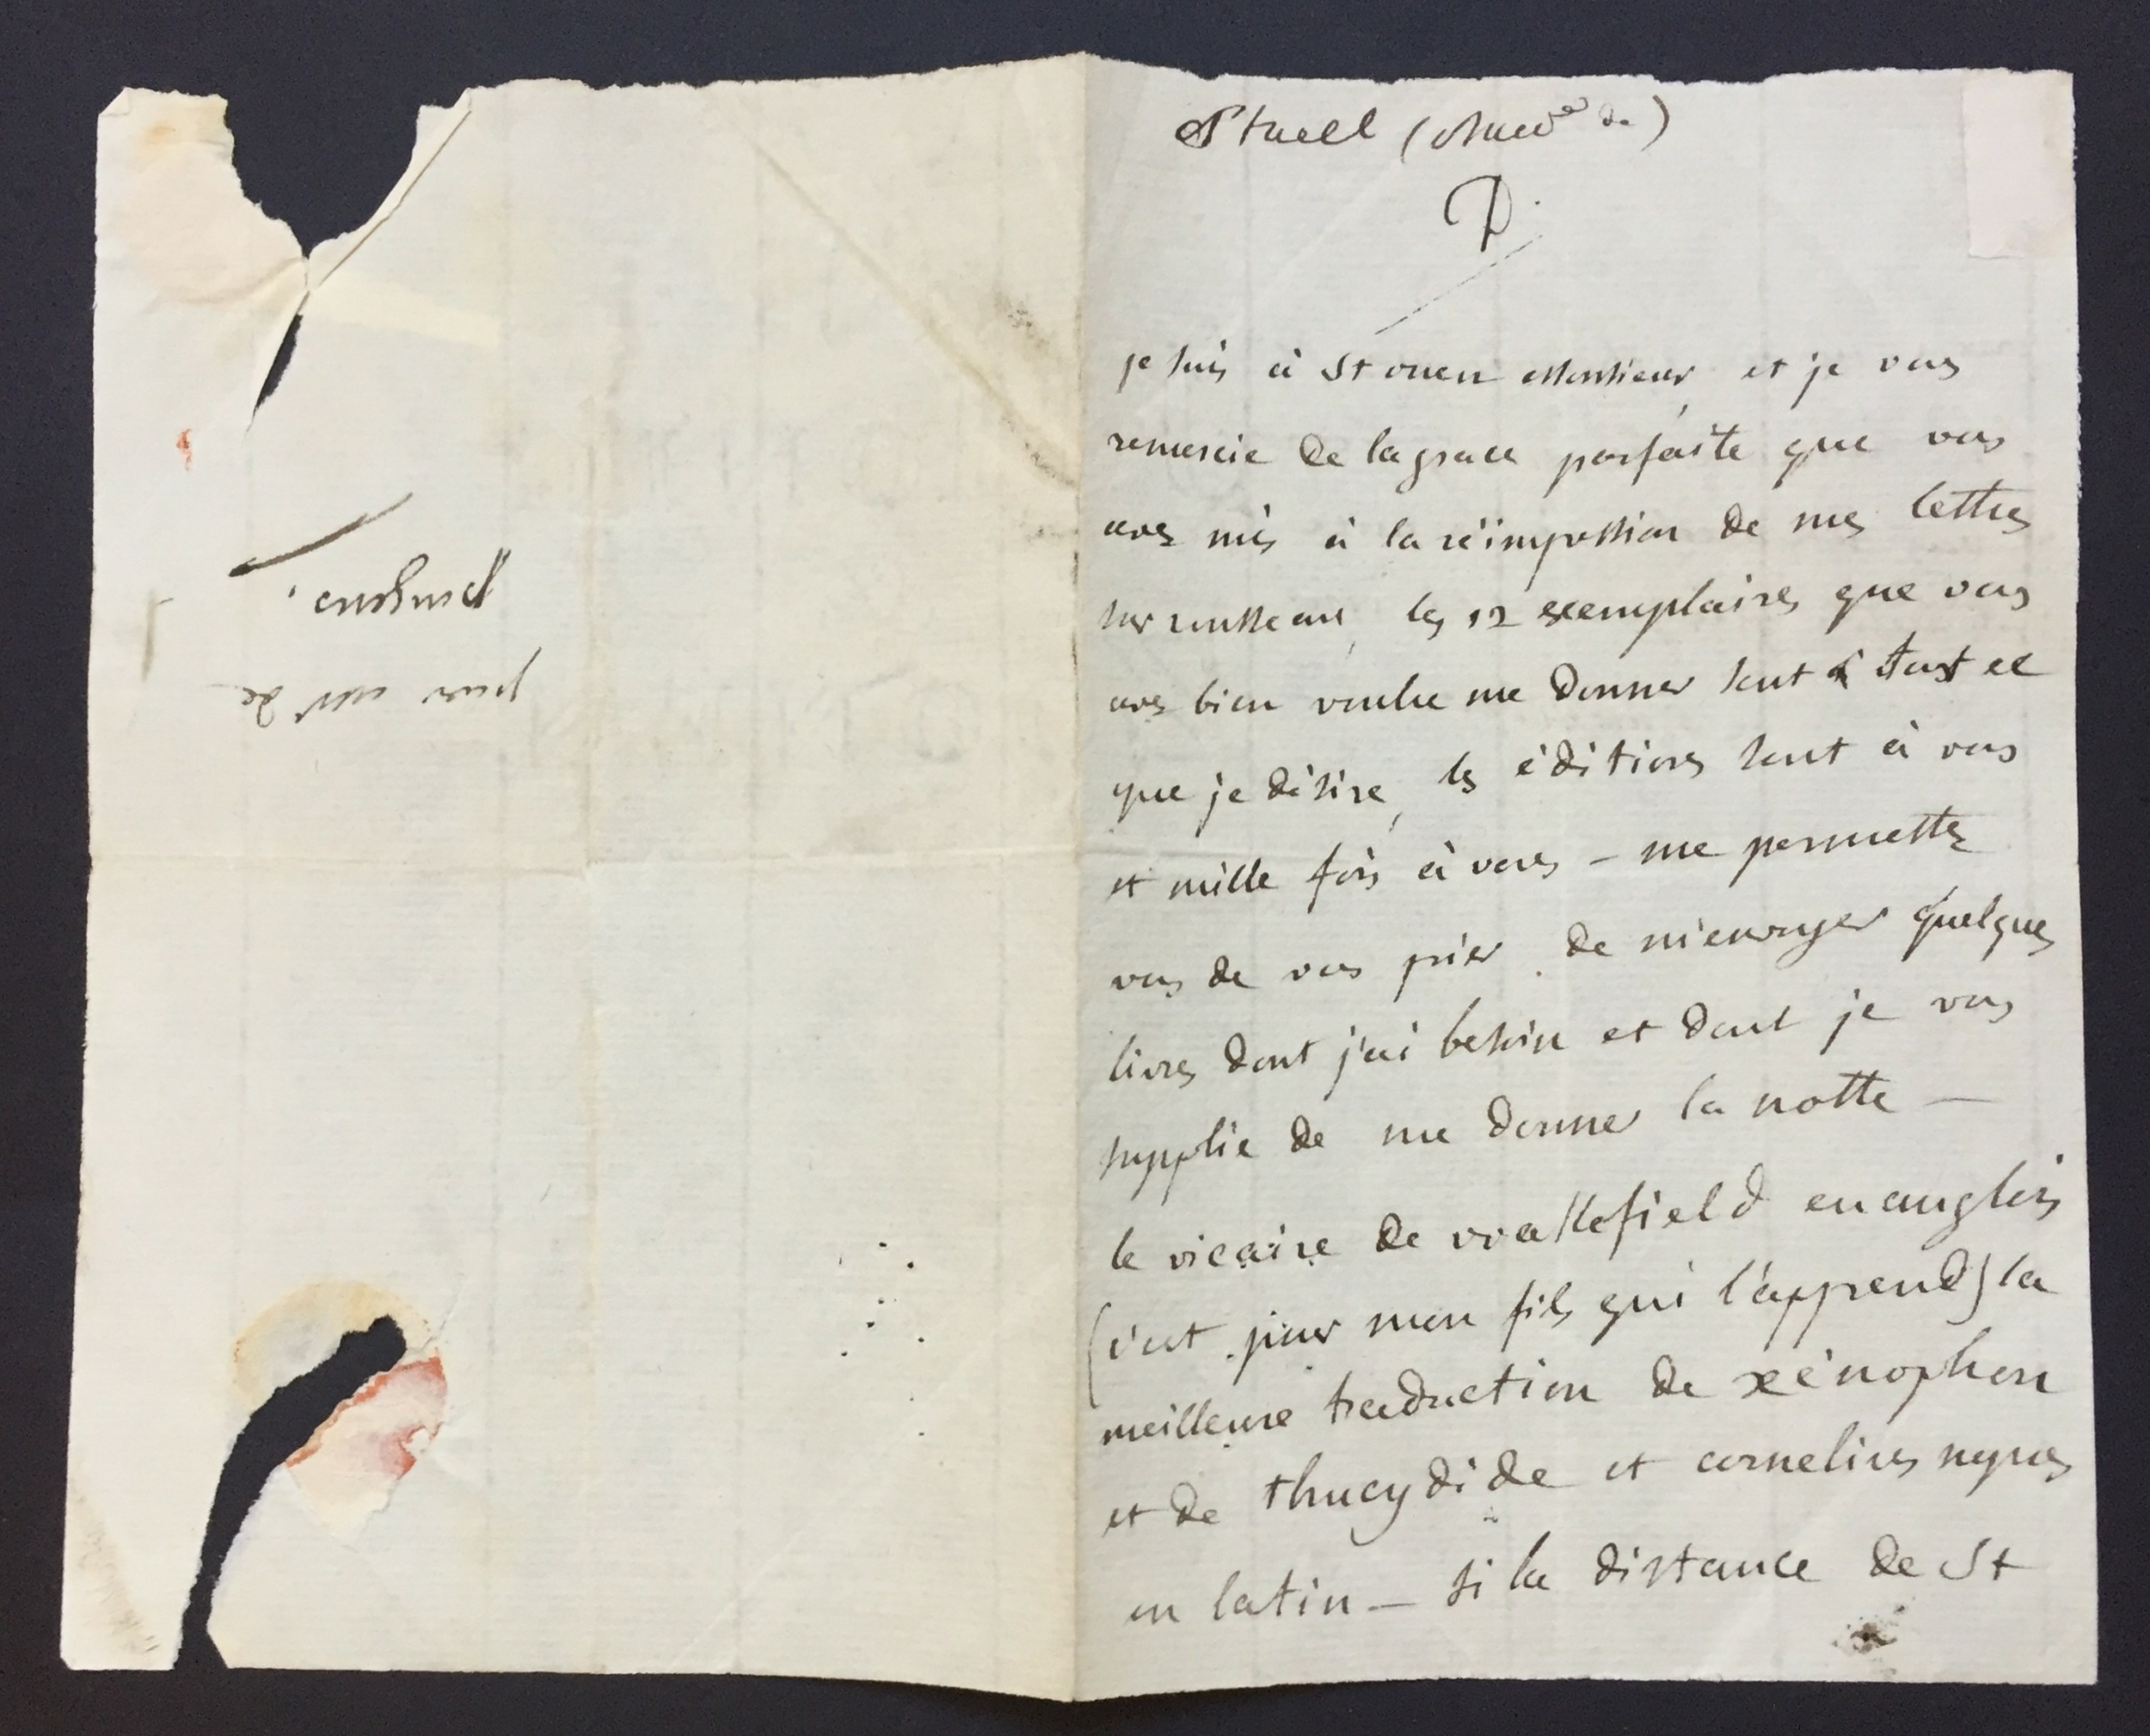 Stael (Mad^e de)
D.
je suis à St ouen Monsieur, et je vous
remercie de la grace parfaite que vous
avez mis à la réimpression de mes lettres
sur rousseau, les 12 exemplaires que vous
avez bien voulu me donner sont à tout ce
que je désire, les éditions sont à vous
et mille fois à vous — me permettez
vous de vous prier de m'envoyer quelques
livres dont j'ai besoin et dont je vous
supplie de me donner la notte —
le vicaire de wakefield en anglois
(c'est pour mon fils qui l'apprend) la
meilleure traduction de xénophon
et de thucydide et cornelius nepos
en latin — si la distance de St
pour Mr de